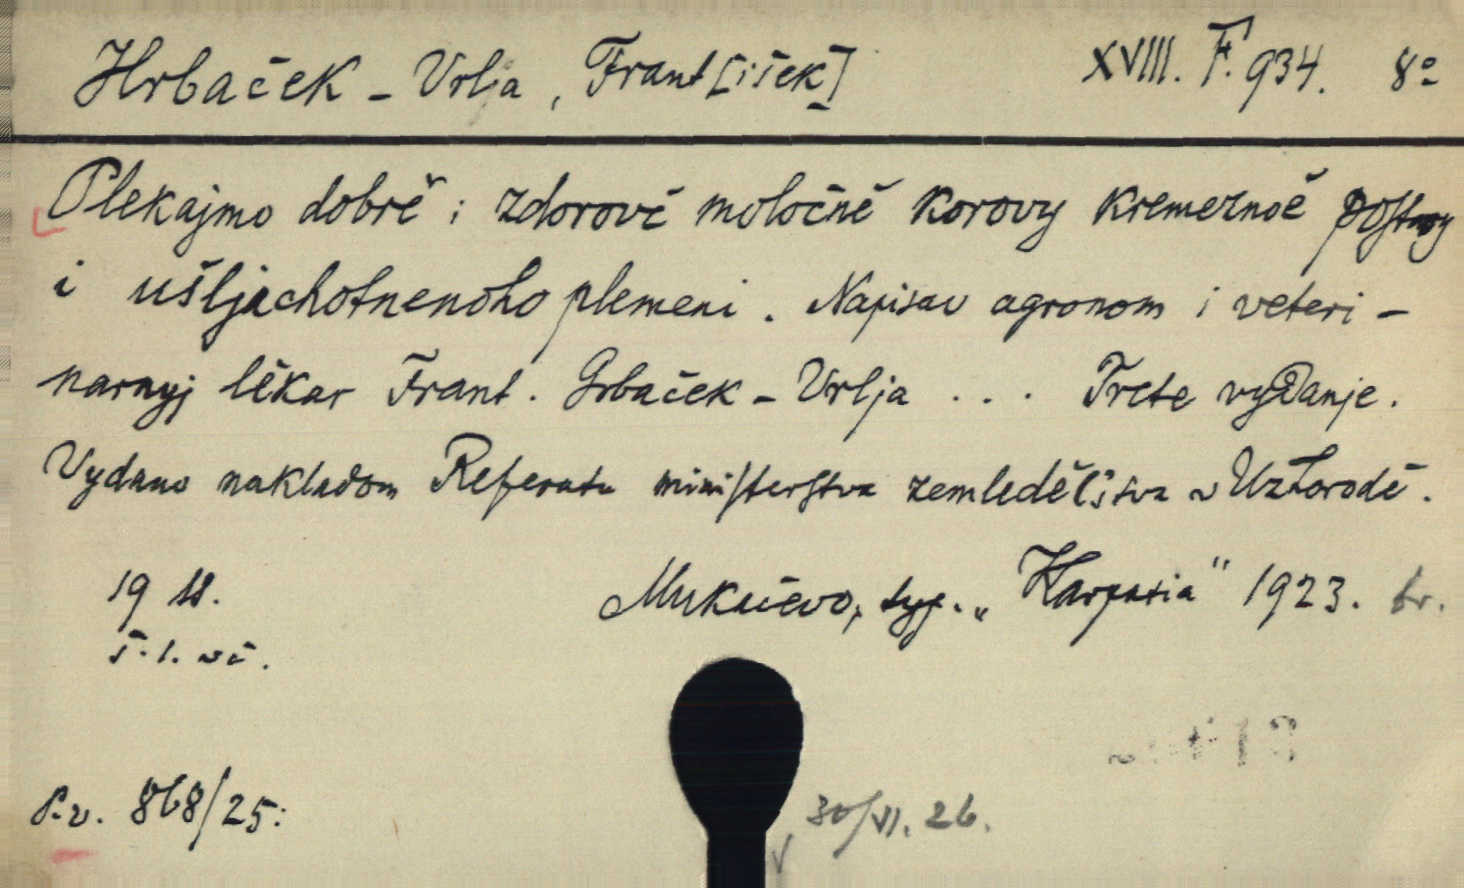 Hrbaček - Vrlja, Frant[išek] XVIII. F. 934. 8°
Plekajmo dobrě i zdorově moločně korovy kremeznoě postavy
i ušljachotnenoho plemeni. Napisav agronom i veteri-
narnyj lěkar Frant. Grbaček - Vrlja ... Trete vydanje.
Vydano nakladom Referatu ministerstva zemledělstva v Užhorodě.
19 18. Mukačevo, typ. „Karpatia" 1923. br.
P.v. 868/25: 30/VI. 26.